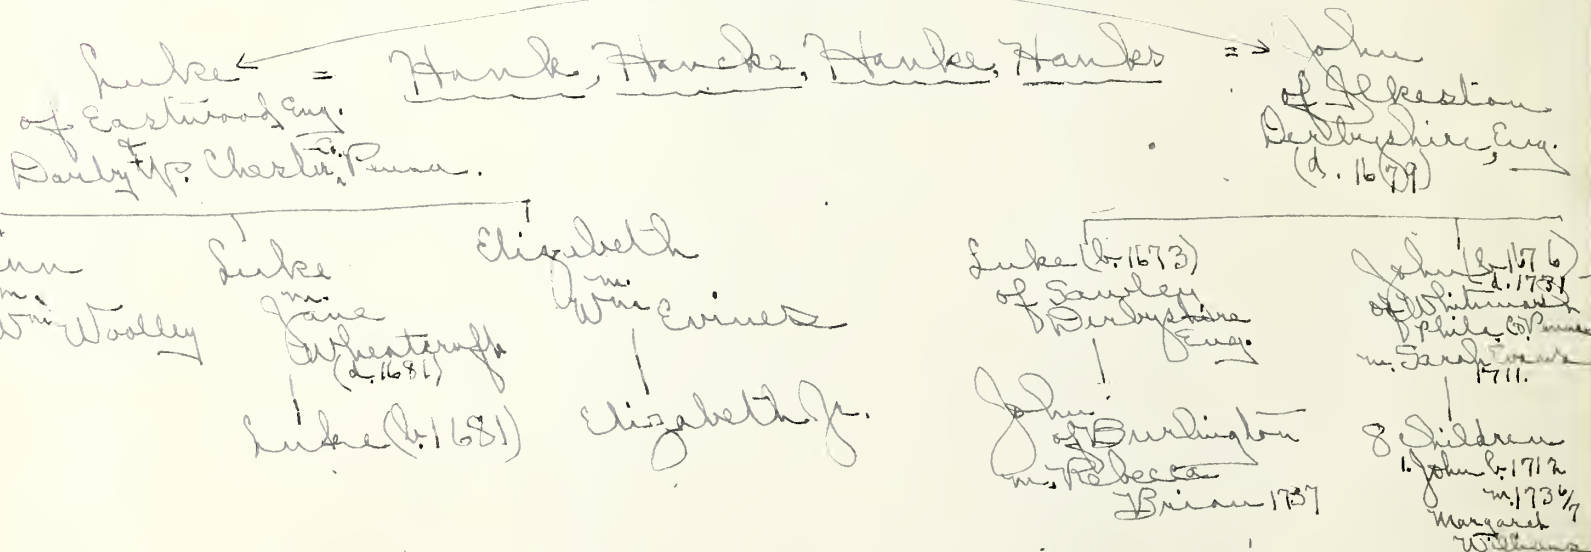 Luke = Hank, Hancke, Hanke, Hanks = John
of Eastwood, Eng.
& Darby Tp. Chester Co. Penna.
of Ilkeston
Derbyshire, Eng.
(d. 1679)
nn
m.
Wm Woolley
Luke
m.
Jane
Wheatcroft
(d. 1681)
Luke (b. 1681)
Elizabeth
m.
Wm Evines
Elizabeth Jr.
Luke (b. 1673)
of Sawley
Derbyshire
Eng.
John
of Burlington
m. Rebecca
Brian 1737
John (b. 1676)
d. 1731
of Whitemarsh
Phila. Co.
m. Sarah
1711.
8 Children
1. John b. 1712
m. 1736/7
Margaret